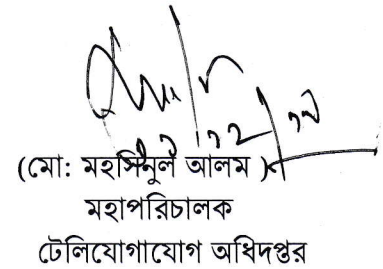 (মো: মহাসিনুল আলম )
মহাপরিচালক
টেলিযোগাযোগ অধিদপ্তর